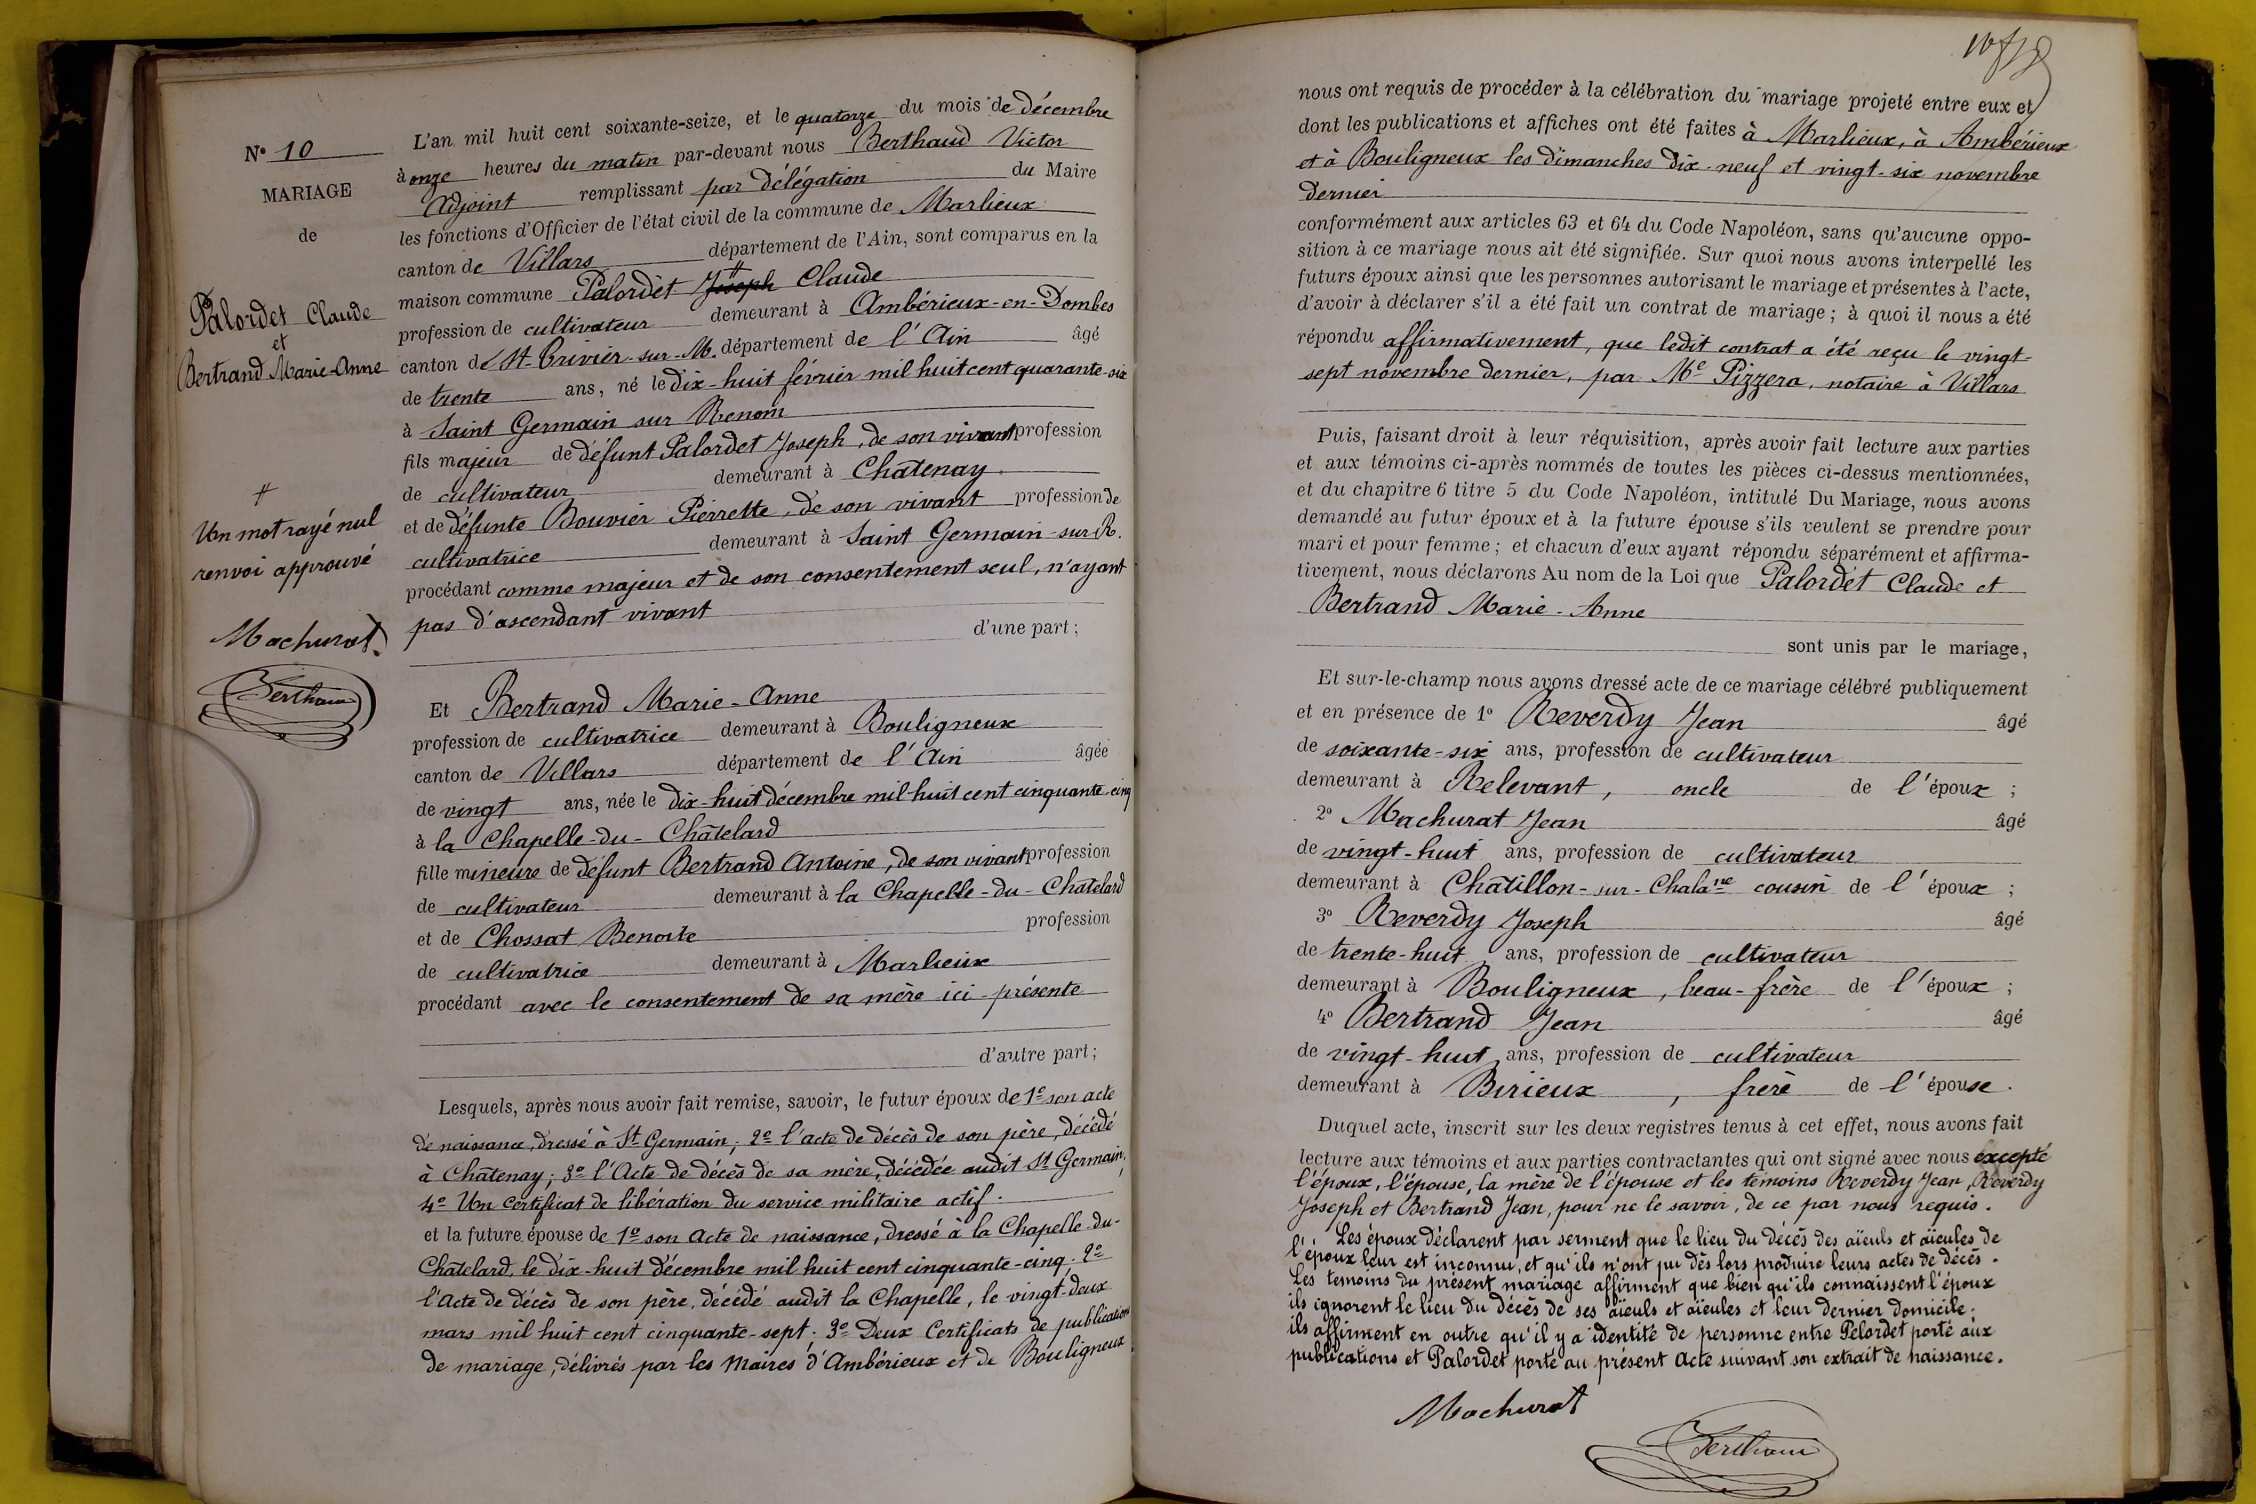 N° 10
MARIAGE
de
Palordet Claude
et
Bertrand Marie-Anne
#
Un mot rayé nul
renvoi approuvé
Machurat
Berthaud
L'an mil huit cent soixante-seize, et le quatorze du mois de décembre
à onze heures du matin par-devant nous Berthaud Victor
Adjoint remplissant par délégation du Maire
les fonctions d'Officier de l'état civil de la commune de Marlieux
canton de Villars département de l'Ain, sont comparus en la
maison commune Palordet Joseph # Claude
profession de cultivateur demeurant à Ambérieux-en-Dombes
canton de St Trivier-sur-M. département de l'Ain âgé
de trente ans, né le dix-huit février mil huit cent quarante-six
à Saint Germain sur Renom
fils majeur de défunt Palordet Joseph, de son vivant profession
de cultivateur demeurant à Châtenay
et de défunte Bouvier Pierrette, de son vivant profession de
cultivatrice demeurant à Saint Germain-sur-R.
procédant comme majeur et de son consentement seul, n'ayant
pas d'ascendant vivant
d'une part;
Et Bertrand Marie-Anne
profession de cultivatrice demeurant à Bouligneux
canton de Villars département de l'Ain âgée
de vingt ans, née le dix-huit décembre mil-huit cent cinquante-cinq
à la Chapelle-du-Châtelard
fille mineure de défunt Bertrand Antoine, de son vivant profession
de cultivateur demeurant à la Chapelle-du-Châtelard
et de Chossat Benoite profession
de cultivatrice demeurant à Marlieux
procédant avec le consentement de sa mère ici-présente
d'autre part;
Lesquels, après nous avoir fait remise, savoir, le futur époux de 1° son acte
de naissance, dressé à St Germain; 2° l'acte de décès de son père, décédé
à Châtenay; 3° l'Acte de décès de sa mère, décédée audit St Germain;
4° Un certificat de libération du service militaire actif.
et la future épouse de 1° son Acte de naissance, dressé à la Chapelle-du-
Châtelard, le dix-huit décembre mil huit cent cinquante-cinq; 2°
l'Acte de décès de son père, décédé audit la Chapelle, le vingt-deux
mars mil huit cent cinquante-sept; 3° Deux Certificats de publication
de mariage, délivrés par les Maires d'Ambérieux et de Bouligneux
nous ont requis de procéder à la célébration du mariage projeté entre eux et
dont les publications et affiches ont été faites à Marlieux, à Ambérieux
et à Bouligneux les dimanches dix-neuf et vingt-six novembre
dernier
conformément aux articles 63 et 64 du Code Napoléon, sans qu'aucune oppo-
sition à ce mariage nous ait été signifiée. Sur quoi nous avons interpellé les
futurs époux ainsi que les personnes autorisant le mariage et présentes à l'acte,
d'avoir à déclarer s'il a été fait un contrat de mariage; à quoi il nous a été
répondu affirmativement, que ledit contrat a été reçu le vingt-
sept novembre dernier, par Me Pizzera, notaire à Villars
Puis, faisant droit à leur réquisition, après avoir fait lecture aux parties
et aux témoins ci-après nommés de toutes les pièces ci-dessus mentionnées,
et du chapitre 6 titre 5 du Code Napoléon, intitulé Du Mariage, nous avons
demandé au futur époux et à la future épouse s'ils veulent se prendre pour
mari et pour femme; et chacun d'eux ayant répondu séparément et affirma-
tivement, nous déclarons Au nom de la Loi que Palordet Claude et
Bertrand Marie-Anne
sont unis par le mariage,
Et sur-le-champ nous avons dressé acte de ce mariage célébré publiquement
et en présence de 1° Reverdy Jean âgé
de soixante-six ans, profession de cultivateur
demeurant à Relevant, oncle de l'époux;
2° Machurat Jean âgé
de vingt-huit ans, profession de cultivateur
demeurant à Châtillon-sur-Chalane cousin de l'époux;
3° Reverdy Joseph âgé
de trente-huit ans, profession de cultivateur
demeurant à Bouligneux, beau-frère de l'époux;
4° Bertrand Jean âgé
de vingt-huit ans, profession de cultivateur
demeurant à Birieux, frère de l'épouse.
Duquel acte, inscrit sur les deux registres tenus à cet effet, nous avons fait
lecture aux témoins et aux parties contractantes qui ont signé avec nous excepté
l'époux, l'épouse, la mère de l'épouse et les témoins Reverdy Jean, Reverdy
Joseph et Bertrand Jean, pour ne le savoir, de ce par nous requis.
Les époux déclarent par serment que le lieu du décès des aïeuls et aïeules de
l'époux leur est inconnu, et qu'ils n'ont pu dès lors produire leurs actes de décès.
Les témoins du présent mariage affirment que bien qu'ils connaissent l'époux
ils ignorent le lieu du décès de ses aïeuls et aïeules et leur dernier domicile;
ils affirment en outre qu'il y a identité de personne entre Pelordet porté aux
publications et Palordet porté au présent Acte suivant son extrait de naissance.
Machurat
Berthaud